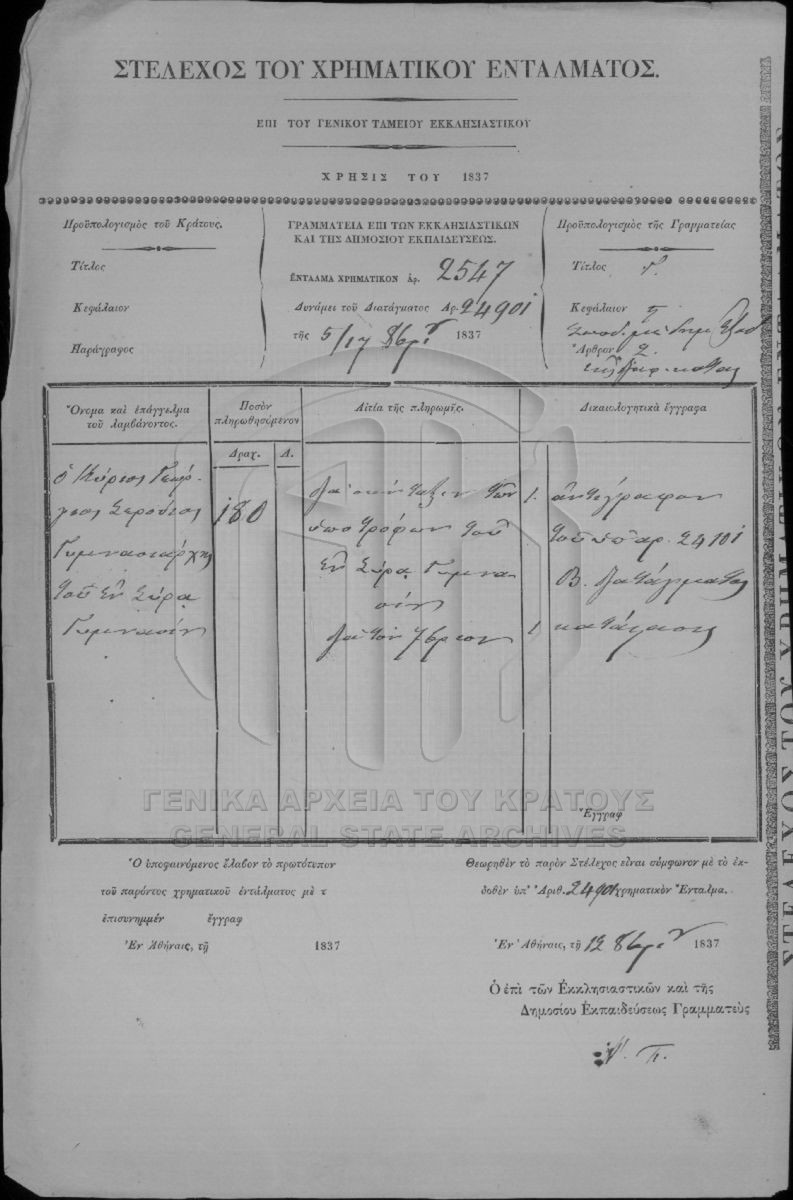 ΣΤΕΛΕΧΟΣ ΤΟΥ ΧΡΗΜΑΤΙΚΟΥ ΕΝΤΑΛΜΑΤΟΣ.
ΕΠΙ ΤΟΥ ΓΕΝΙΚΟΥ ΤΑΜΕΙΟΥ ΕΚΚΛΗΣΙΑΣΤΙΚΟΥ
ΧΡΗΣΙΣ ΤΟΥ 1837
Προϋπολογισμὸς τοῦ Κράτους.
Τίτλος
Κεφάλαιον
Παράγραφος
ΓΡΑΜΜΑΤΕΙΑ ΕΠΙ ΤΩΝ ΕΚΚΛΗΣΙΑΣΤΙΚΩΝ
ΚΑΙ ΤΗΣ ΔΗΜΟΣΙΟΥ ΕΚΠΑΙΔΕΥΣΕΩΣ.
ΕΝΤΑΛΜΑ ΧΡΗΜΑΤΙΚΟΝ ἀρ. 2547
Δυνάμει τοῦ Διατάγματος Ἀρ. 24901
τῆς 5/17 8βρίου 1837
Προϋπολογισμὸς τῆς Γραμματείας
Τίτλος
Κεφάλαιον
Ἄρθρον 2.
Ὄνομα καὶ ἐπάγγελμα
τοῦ λαμβάνοντος.
Ποσὸν
πληρωθησόμενον
Δραχ. Λ.
Αἰτία τῆς πληρωμῆς.
Δικαιολογητικὰ ἔγγραφα
ὁ Κύριος Γεώρ-
γιος Σερούιος
Γυμνασιάρχης
τοῦ ἐν Σύρᾳ
Γυμνασίου
180
τῶν
ὑποτρόφων τοῦ
ἐν Σύρᾳ Γυμνα
σίου
διὰ τὸν 7βριον
1. ἀντίγραφον
τοῦ ὑπ' ἀρ. 24101
Β. Διατάγματος
1. κατάστασις
Ἔγγραφ
ΓΕΝΙΚΑ ΑΡΧΕΙΑ ΤΟΥ ΚΡΑΤΟΥΣ
GENERAL STATE ARCHIVES
Ὁ ὑποφαινόμενος ἔλαβον τὸ πρωτότυπον
τοῦ παρόντος χρηματικοῦ ἐντάλματος μὲ τ
ἐπισυνημμέν ἔγγραφ
Ἐν Ἀθήναις, τῇ 1837
Θεωρηθὲν τὸ παρὸν Στέλεχος εἶναι σύμφωνον μὲ τὸ ἐκ-
δοθὲν ὑπ' Ἀριθ. 24901 χρηματικὸν Ἔνταλμα.
Ἐν Ἀθήναις, τῇ 12 8βρίου 1837
Ὁ ἐπὶ τῶν Ἐκκλησιαστικῶν καὶ τῆς
Δημοσίου Ἐκπαιδεύσεως Γραμματεὺς
ΣΤΕΛΕΧΟΣ ΤΟΥ ΧΡΗΜΑΤΙΚΟΥ